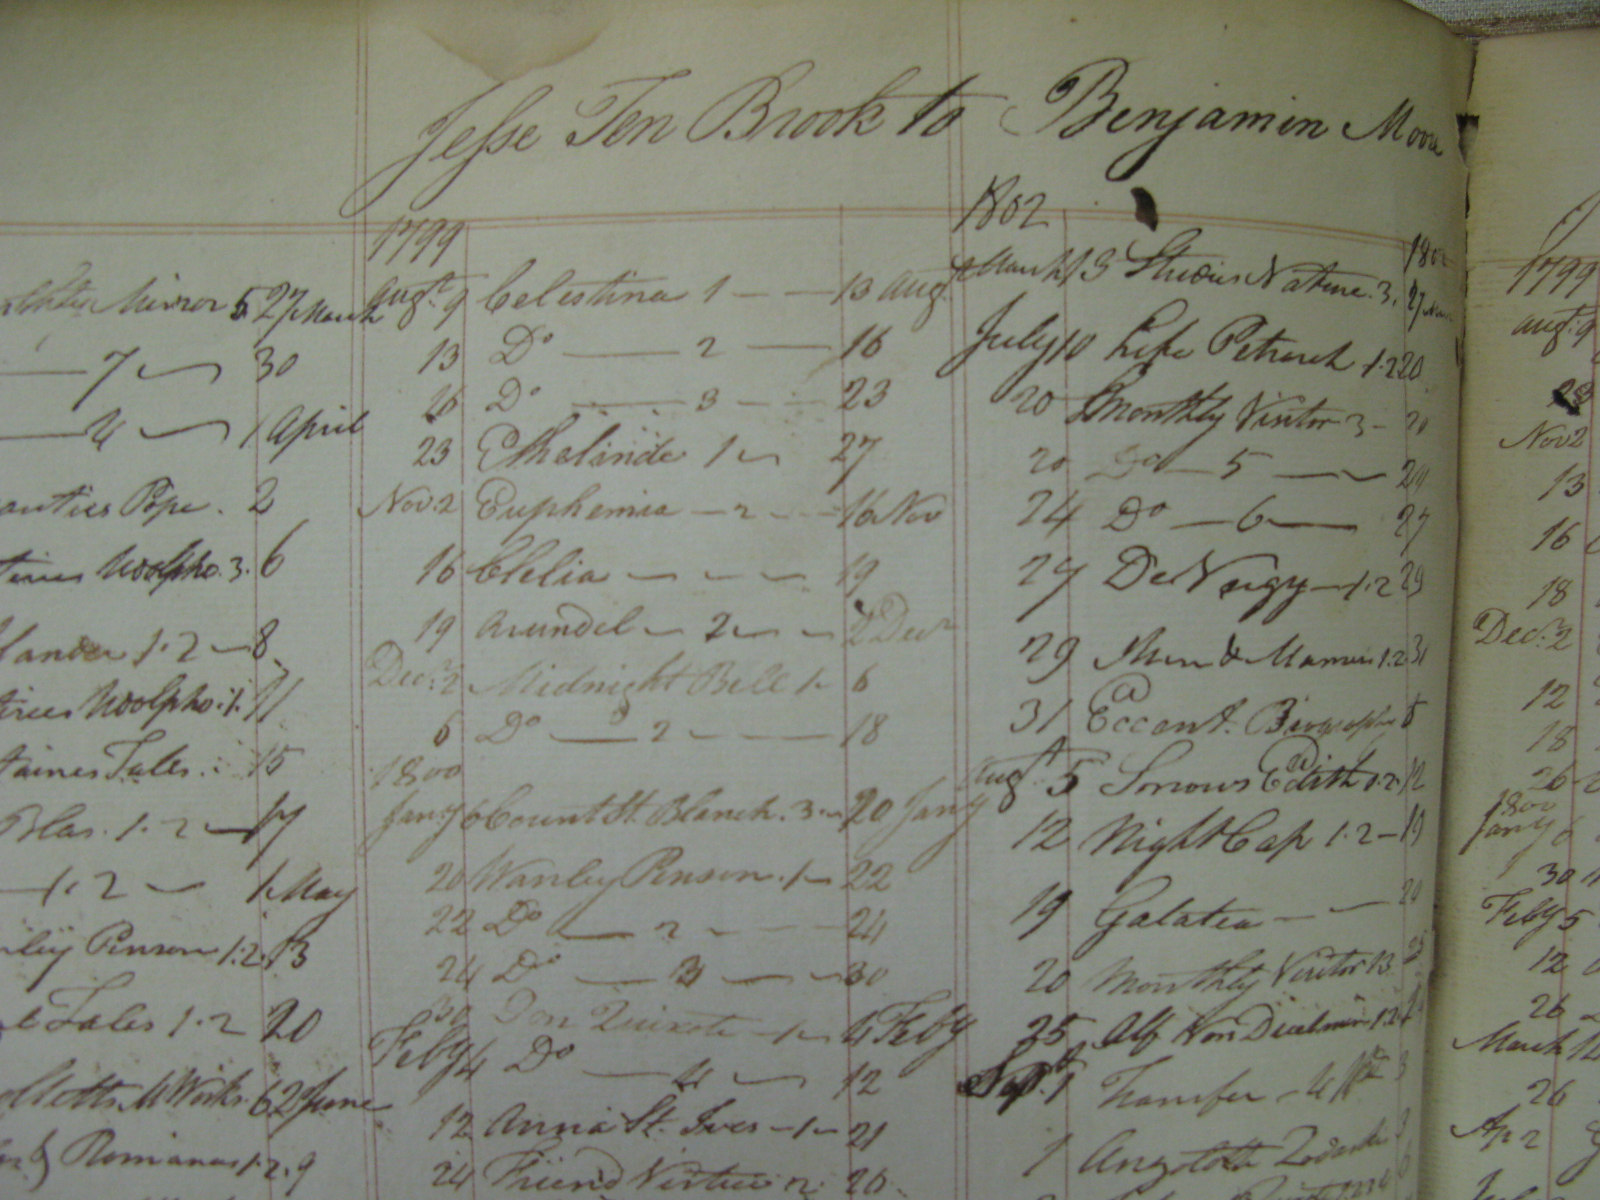 Jesse Ten Brook to Benjamin Moore
Mirror 5 27 March
7 30
4 1 April
Pope. 2
Udolpho. 3. 6
1.2 8
Udolpho. 1. 11
Tales. 15
Blas. 1.2 17
1.2 1 May
Pinson 1.2. 13
Tales 1.2 20
Works. 6 2 June
Romances 1.2. 9
1799
Augt. 9 Celestina 1 13 Augt.
13 Do 2 16
16 Do 3 23
23 Ethelinde 1 27
Nov. 2 Euphemia 2 16 Nov
16 Clelia 19
19 Arundel 2 2 Decr
Dec. 2 Midnight Bell 1 6
6 Do 2 18
1800
Jany 6 Count St. Blanch. 3 20 Jany
20 Wanley Penson. 1 22
22 Do 2 24
24 Do 3 30
30 Don Quixote 1 4 Feby
Feby 4 Do 4 12
12 Anna St. Ives 1 21
24 Friend Virtue 2. 26
1802
March 13 Studies Nature. 3. 27
July 10 Life Petrarch 1.2 20
20 Monthly Visitor 3 20
20 Do 5 24
24 Do 6 27
27 De 1.2 29
29 Men & Manners 1.2 31
31 Eccent. Biography 5
Augt. 5 Sorrows Edith 1.2 12
12 Night Cap 1.2 19
19 Galatea 20
20 Monthly Visitor 13 25
25 Alf Von Duelman 1.2
Sept. 1 Transfer 4 3
1 Zodiack 3
1799
Augt. 9
Nov 2
13
16
18
Dec. 2
12
18
26
1800
Jany 6
30
Feby 5
12
26
March 14
26
Ap 2